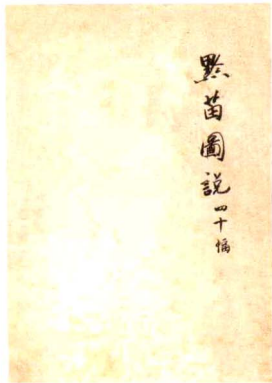 黔苗圖說四十幅